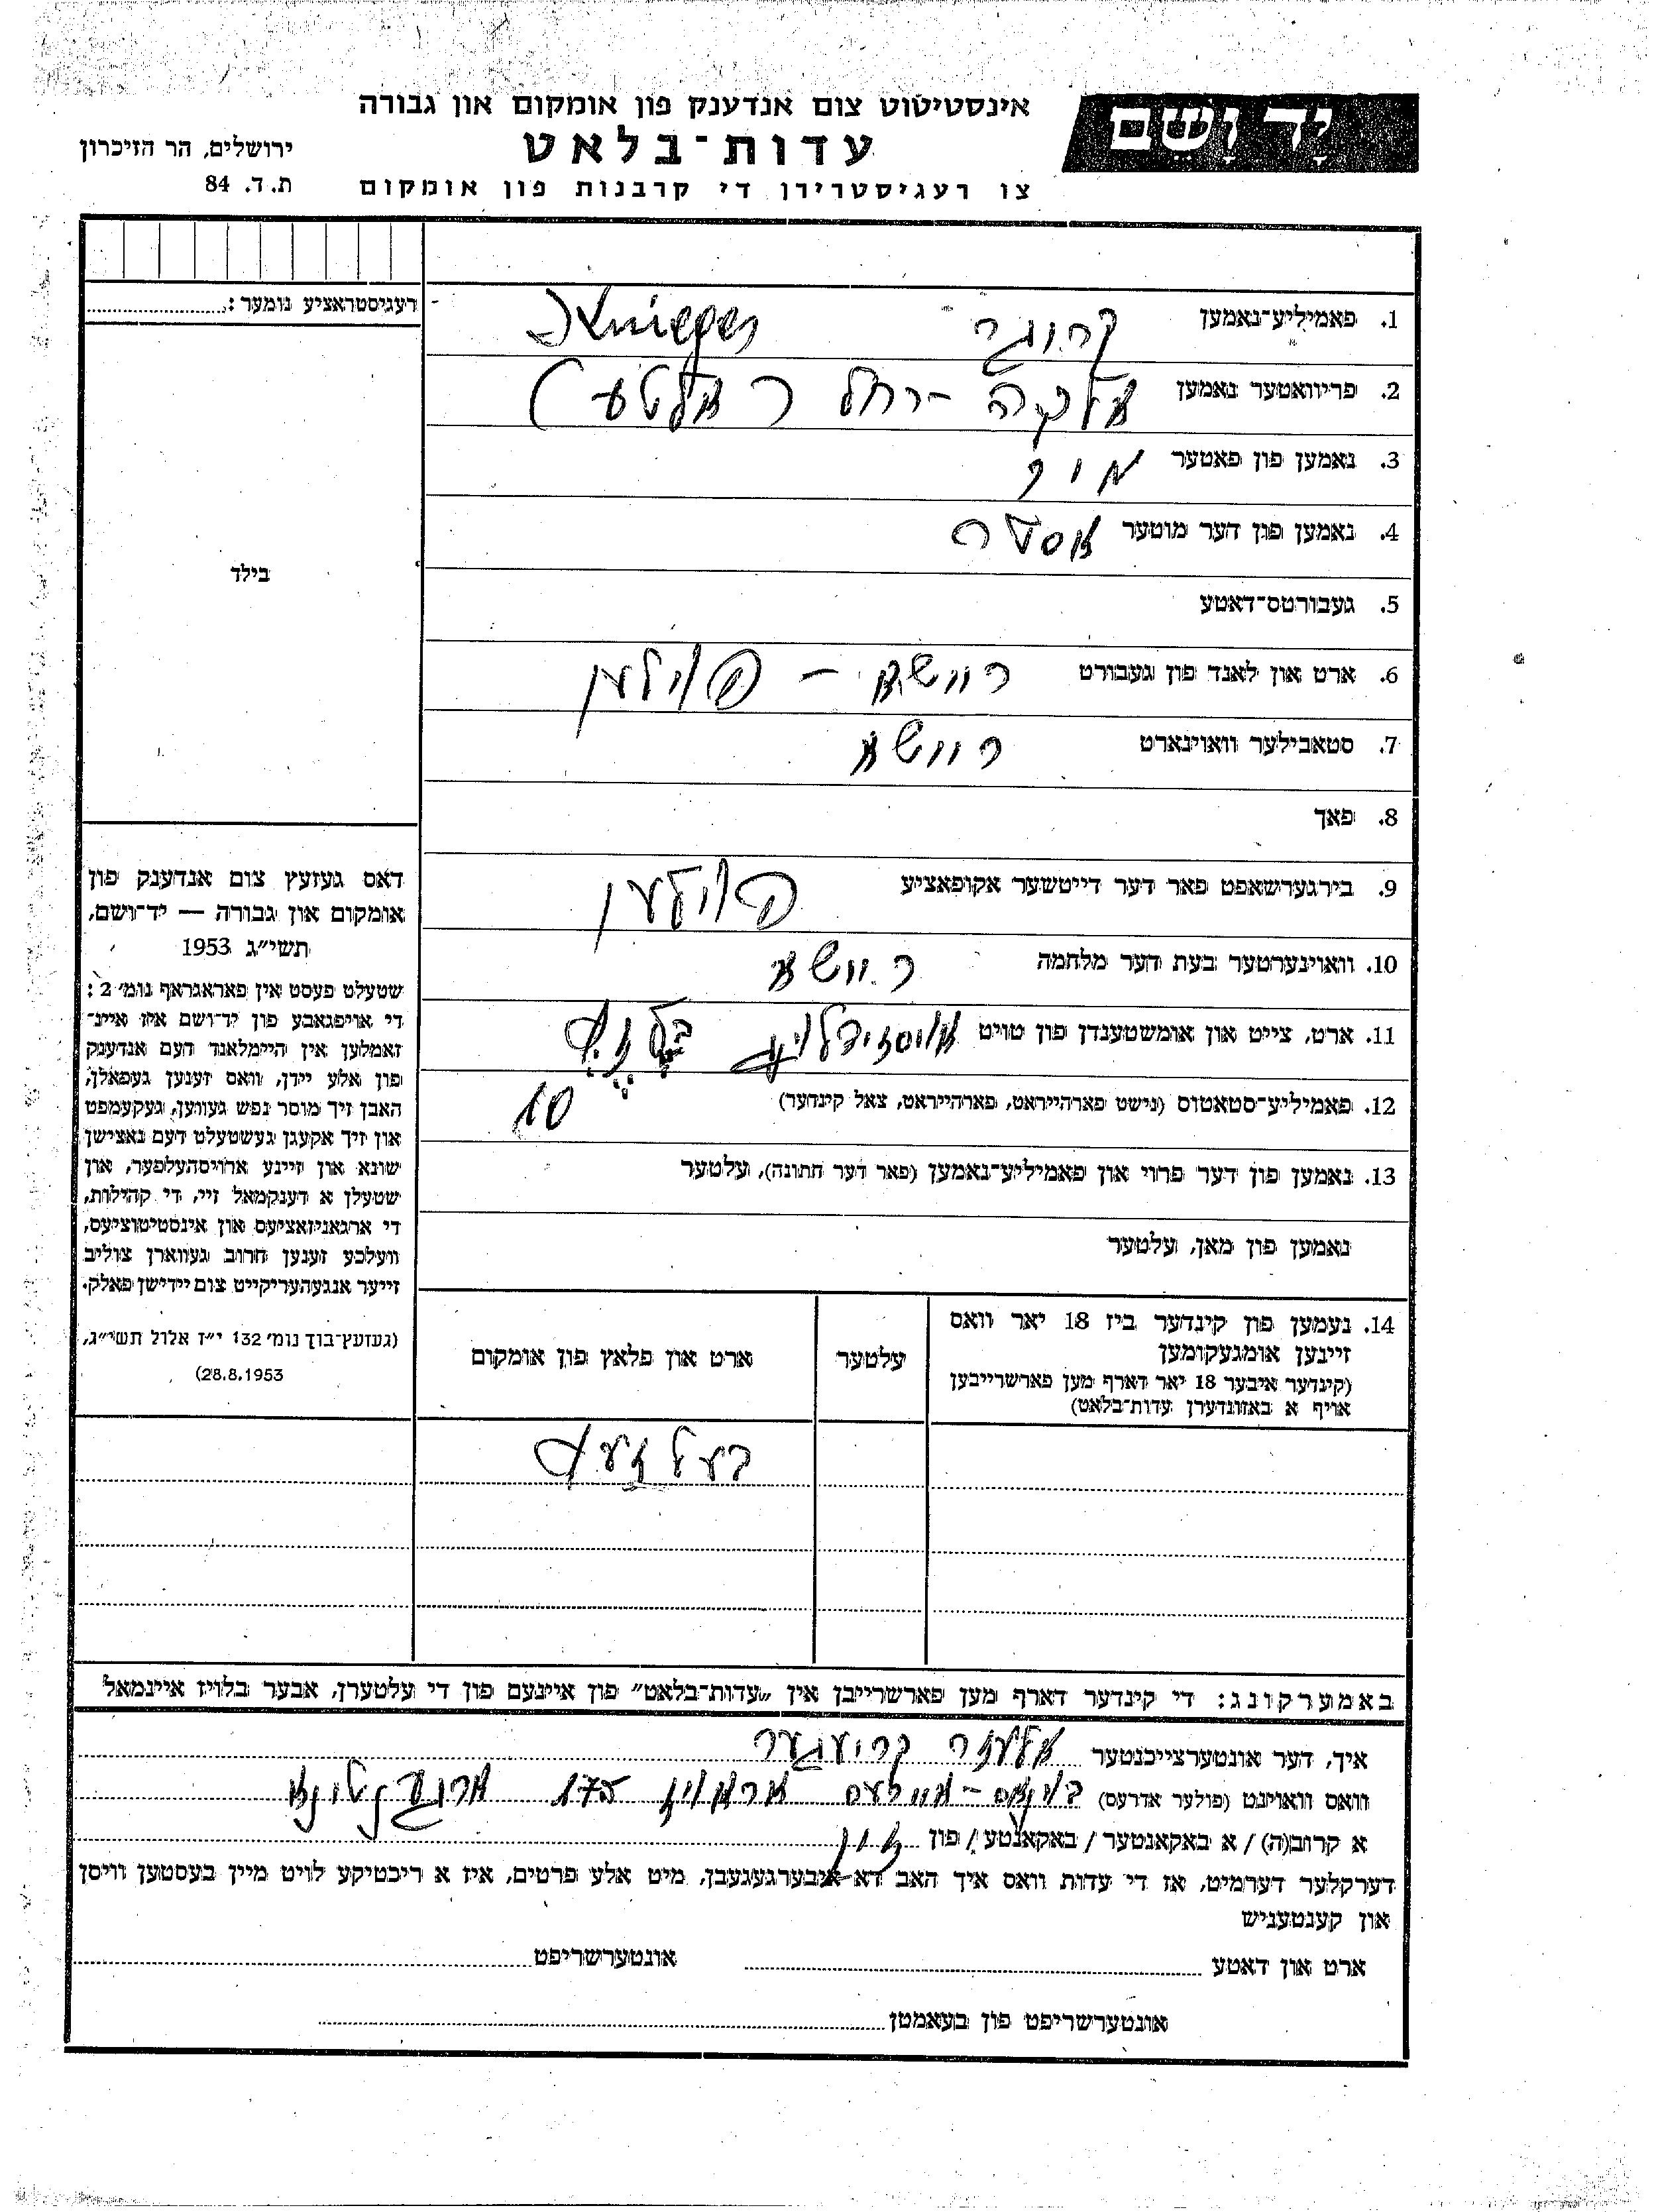 יד ושם
אינסטיטוט צום אנדענק פון אומקום און גבורה
עדות־בלאט
צו רעגיסטרירן די קרבנות פון אומקום
ירושלים, הר הזיכרון
ת. ד. 84
רעגיסטראציע נומער:
בילד
דאס געזעץ צום אנדענק פון
אומקום און גבורה — יד־ושם,
תשי״ג 1953
שטעלט פעסט אין פאראגראף נומ׳ 2:
די אויפגאבע פון יד־ושם איז איינ־
זאמלען אין היימלאנד דעם אנדענק
פון אלע יידן, וואס זענען געפאלן,
האבן זיך מוסר נפש געווען, געקעמפט
און זיך אקעגן געשטעלט דעם נאצישן
שונא און זיינע ארויסהעלפער, און
שטעלן א דענקמאל זיי, די קהילות,
די ארגאניזאציעס און אינסטיטוציעס,
וועלכע זענען חרוב געווארן צוליב
זייער אנגעהעריקייט צום יידישן פאלק.
(געזעץ־בוך נומ׳ 132 י״ז אלול תשי״ג,
28.8.1953)
1. פאמיליע־נאמען קרוגר Krieger
2. פריוואטער נאמען רחל
3. נאמען פון פאטער
4. נאמען פון דער מוטער אסתר
5. געבורטס־דאטע
6. ארט און לאנד פון געבורט רוושא – פוילען
7. סטאבילער וואוינארט רוושא
8. פאך
9. בירגערשאפט פאר דער דייטשער אקופאציע פוילען
10. וואוינערטער בעת דער מלחמה רוושא
11. ארט, צייט און אומשטענדן פון טויט
12. פאמיליע־סטאטוס (נישט פארהייראט, פארהייראט, צאל קינדער) 10
13. נאמען פון דער פרוי און פאמיליע־נאמען (פאר דער חתונה), עלטער
נאמען פון מאן, עלטער
14. נעמען פון קינדער ביז 18 יאר וואס
זיינען אומגעקומען
(קינדער איבער 18 יאר דארף מען פארשרייבען
אויף א באזונדערן עדות־בלאט)
עלטער
ארט און פלאץ פון אומקום
בעלזעץ
באמערקונג: די קינדער דארף מען פארשרייבן אין „עדות־בלאט" פון איינעם פון די עלטערן, אבער בלויז איינמאל
איך, דער אונטערצייכנטער אלעזר קריעגער
וואס וואוינט (פולער אדרעס) בוענאס־איירעס 175 ארגענטינא
א קרוב(ה) / א באקאנטער / באקאנטע / פון זון
דערקלער דערמיט, אז די עדות וואס איך האב דא איבערגעגעבן, מיט אלע פרטים, איז א ריכטיקע לויט מיין בעסטען וויסן
און קענטעניש
ארט און דאטע אונטערשריפט
אונטערשריפט פון בעאמטן